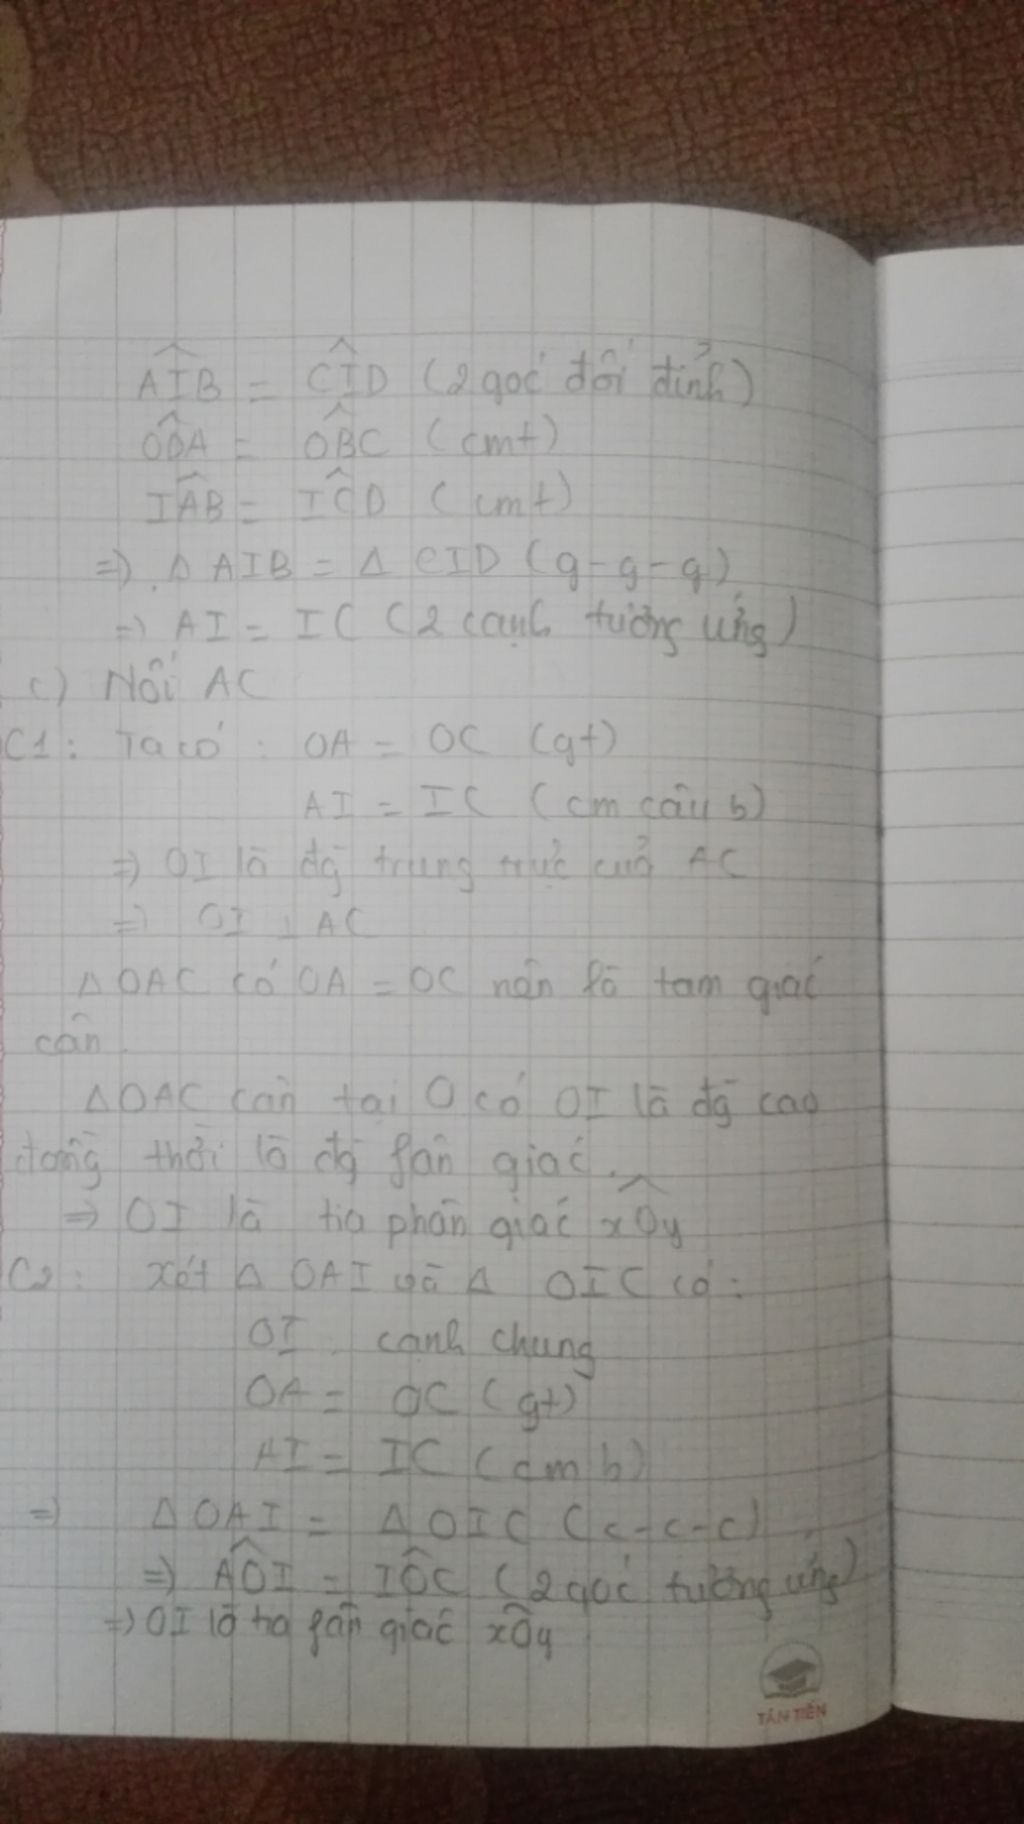 AÎB = CÎD (2 góc đối đỉnh)
OD̂A = OB̂C (cmt)
IÂB = IĈD (cmt)
=> Δ AIB = Δ CID (g-g-g)
=> AI = IC (2 cạnh tương ứng)
c) Nối AC
C1: Ta có: OA = OC (gt)
AI = IC (cm câu b)
=> OI là đg trung trực của AC
=> OI ⊥ AC
Δ OAC có OA = OC nên là tam giác
cân.
Δ OAC cân tại O có OI là đg cao
đồng thời là đg fân giác.
=> OI là tia phân giác xÔy
C2: Xét Δ OAI và Δ OIC có:
OI cạnh chung
OA = OC (gt)
AI = IC (cm b)
=> Δ OAI = Δ OIC (c-c-c)
=> AÔI = IÔC (2 góc tương ứng)
=> OI là tia fân giác xÔy
TÂN TIẾN